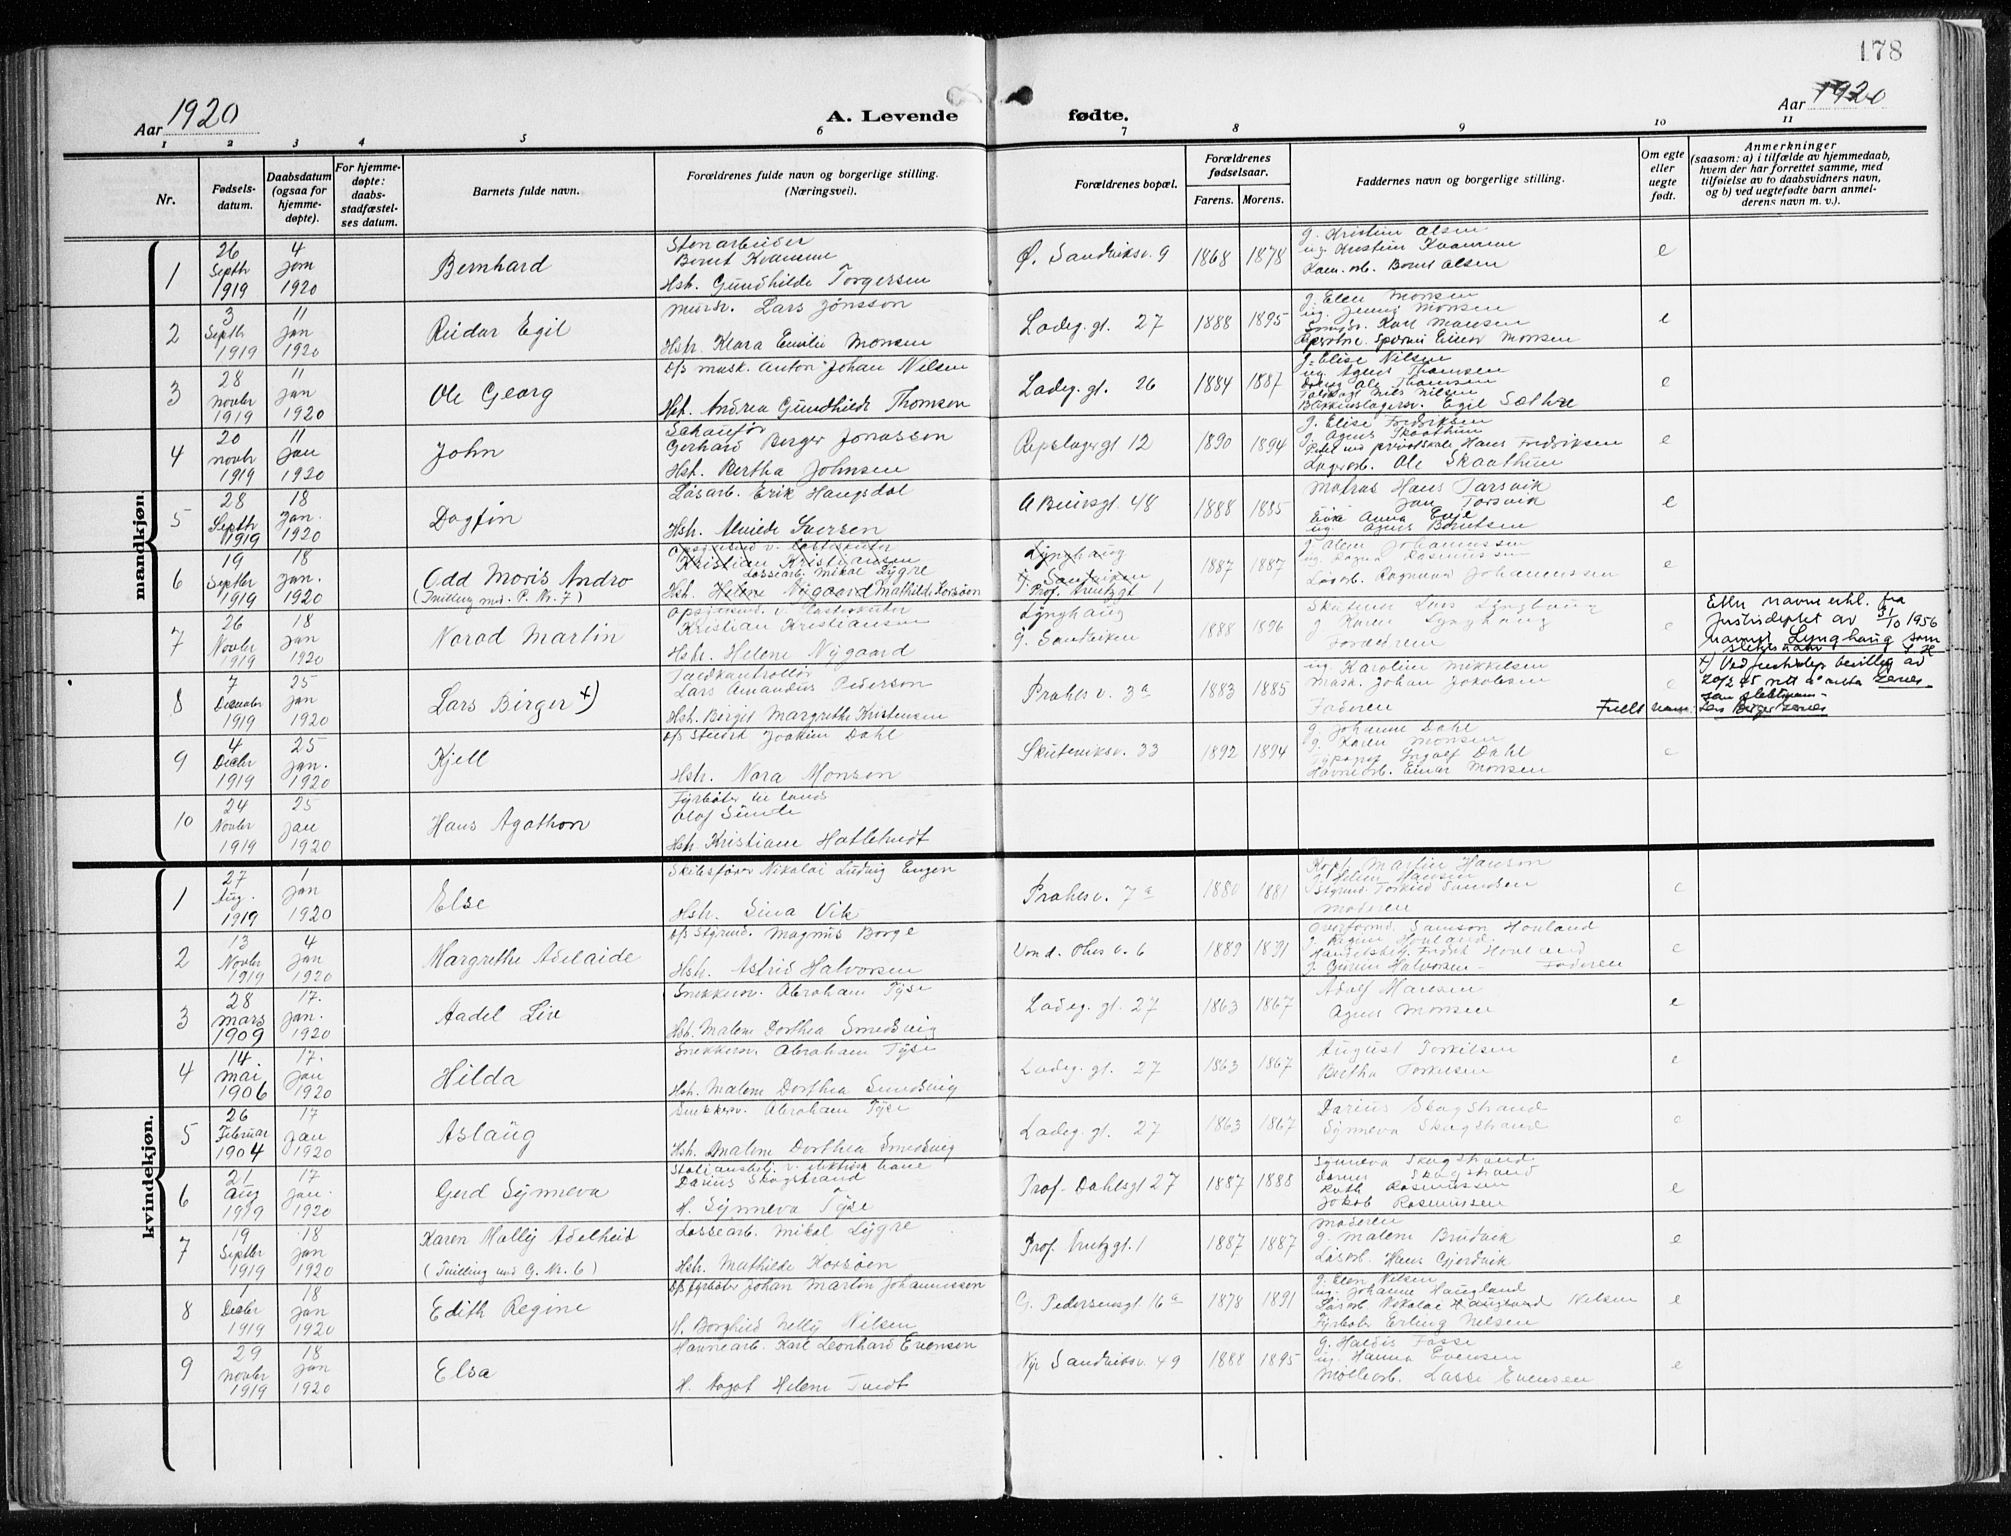 178
Aar 1920
A. Levende fødte.
Aar 1920
1 2 3 4 5 6 7 8 9 10 11
Nr.
Fødsels-
datum.
Daabsdatum
(ogsaa for
hjemme-
døpte).
For hjemme-
døpte:
daabs-
stadfæstel-
ses datum.
Barnets fulde navn.
Forældrenes fulde navn og borgerlige stilling.
(Næringsvei).
Forældrenes bopæl.
Forældrenes
fødselsaar.
Farens. Morens.
Faddernes navn og borgerlige stilling.
Om egte
eller
uegte
født.
Anmerkninger
(saasom: a) i tilfælde av hjemmedaab,
hvem der har forrettet samme, med
tilføielse av to daabsvidners navn,
og b) ved uegtefødte barn anmel-
derens navn m. v.).
mandkjøn.
1
26
Septbr
1919
4
Jan
1920
Bernhard
Stenarbeider
Bernt Kvamme
Hstr. Gundhilde Torgersen
Ø. Sandviksv. 9
1868 1878
g. Kristine Olsen
ug. Kristine Kvamme
Kam. arb. Bernt Olsen
e
2
3
Septbr
1919
11
Jan
1920
Reidar Egil
Murer. Lars Jonsson
Hstr. Klara Emilie Monsen
Ladeg. gt. 27
1888 1895
g. Elen Monsen
ug. Jenny Monsen
Karl Monsen
Einar Monsen
e
3
28
Novbr
1919
11
Jan
1920
Ole Georg
d/s mask. Anton Johan Nilsen
Hst. Andrea Gundhilde Thomsen
Ladeg. gt. 26
1884 1887
g. Elise Nilsen
ug. Agnes Thomsen
Ole Thomsen
Nils Nilsen
Blikkenslagersv. Egil Sæthre
e
4
20
Novbr
1919
11
Jan
1920
John
Schaufør
Gerhard Berger Jonassen
Hst. Bertha Johnsen
Repslagergt 12
1890 1894
g. Elise Fredriksen
g. Agnes Skaathun
Hans Fredriksen
Lagerarb. Ole Skaathun
e
5
28
Septbr
1919
18
Jan.
1920
Dagfin
Løsarb. Erik Haugsdal
Hstr. Alvide Iversen
48
1888 1885
Matros Hans Torsvik
Jan Torsvik
Enke Anna Evje
ug. Agnes Berntsen
e
6
19
Septbr
1919
18
Jan.
1920
Odd Moris Andro
(Tvilling med P. Nr. 7)
Opsynsmd v. Lastekuter
Kristian Kristiansen
Lossearb. Mikal Lygre
Hst. Helene Nygaard Mathilde Korsøen
Lynghaug
Y. Sandviken
Prof. Hrutzgt 1
1887 1887
g. Johannessen
ug. Rasmussen
Løsarb. Ragnvald Johannessen
e
7
26
Novbr
1919
18
Jan
1920
Norod Martin
Opsynsmd. v. Lastekuter
Kristian Kristiansen
Hstr. Helene Nygaard
Lynghaug
Y. Sandviken
1888 1896
Lars Lynghaug
g. Karen Lynghaug
Forældren
e
Etter navneerkl. fra
Justisdeptet av 31/10 1956
navnet Lynghaug som
slektsnavn
8
7
Desember
1919
25
Jan
1920
Lars Birger x)
Toldkontrollør
Lars Amandus Pederson
Hstr. Berget Margrethe Kristensen
Prahesv. 3a
1883 1885
ug. Karoline Mikkelsen
Mask. Johan Jakobsen
Faderen
e
x) Ved bevilling av
20/2 45 rett å anta
som slektsnavn.
Fullt navn:
Lars Birger
9
4
Decbr
1919
25
Jan.
1920
Kjell
d/s Stuert Joakim Dahl
Hstr. Nora Monsen
Skuteviksv. 33
1892 1894
g. Johanne Dahl
g. Karen Monsen
Typograf Ingolf Dahl
Havnearb. Einar Monsen
e
10
24
Novbr
1919
25
Jan
1920
Hans Agathon
Fyrbøter til lands
Olaf Sunde
Hstr Kristiane Hatletvedt
kvindekjøn.
1
27
Aug.
1919
1
Jan
1920
Else
Skibsfører Nikolai Ludvig Eugen
Hstr. Sina Vik
Prahesv. 7a
1880 1881
Kapt. Martin Hanson
g. Helene Hansen
Styrmd. Torkild Samdsen
Moderen
e
2
13
Novbr
1919
4
Jan
1920
Margrethe Adelaide
d/s Styrmd. Magnus Borge
Hstr. Astrid Halvorsen
Von d. Ohes v. 6
1889 1891
Overformd. Samson Hovland
g. Regine Hovland
Handelsbtj. Fredrik Hovland
g. Gunni Halvorsen - Faderen
e
3
28
Mars
1909
17.
Jan.
1920
Aadel Liv
Snekkersv. Abraham Tyse
Hst. Malene Dorthea Smedsvig
Ladeg. gt. 27
1863 1867
Adolf Hansen
Agnes Monsen
e
4
14
Mai
1906
17.
Jan
1920
Hilda
Snekkersv. Abraham Tyse
Hst. Malene Dorthea Smedsvig
Ladeg. gt. 27
1863 1867
August Torkilsen
Bertha Torkilsen
e
5
26
Februar
1904
17
Jan
1920
Aslaug
Snekkersv. Abraham Tyse
Hst. Malene Dorthea Smedsvig
Ladeg. gt. 27
1863 1867
Darius Skogstrand
Synneva Skogstrand
e
6
21
Aug
1919
17
Jan.
1920
Gerd Synneva
Stationsbetj. v. elektrisk bane
Darius Skogstrand
H. Synneva Tyse
Prof. Dahlsgt 27
1887 1888
Synneva Skogstrand
Darius Skogstrand
Ruth Rasmussen
Jakob Rasmussen
e
7
19
Septbr
1919
18
Jan
1920
Karen Molly Adelheid
(Tvilling med G. Nr. 6)
Lossearb. Mikal Lygre
Hstr. Mathilde Korsøen
Prof. Hrutzgt. 1
1887 1887
Moderen
g. Malene Brudvik
Løsarb. Hans Gjerdvik
e
8
1
Decbr
1919
18
Jan
1920
Edith Regine
d/s fyrbøter Johan Martin Johannessen
H. Borghild Nelly Nilsen
G. Pedersensgt 16a
1878 1891
g. Elen Nilsen
ug. Johanne Haugland
Løsarb. Nikolai Haugland Nilsen
Fyrbøter Erling Nilsen
e
9
29
Novbr
1919
18
Jan
1920
Elsa
Havnearb. Karl Leonhard Evensen
H. Aagot Helene Tvedt
Nye Sandviksv. 49
1888 1895
g. Haldis Fosse
ug. Hanna Evensen
Møllearb. Lasse Evensen
e